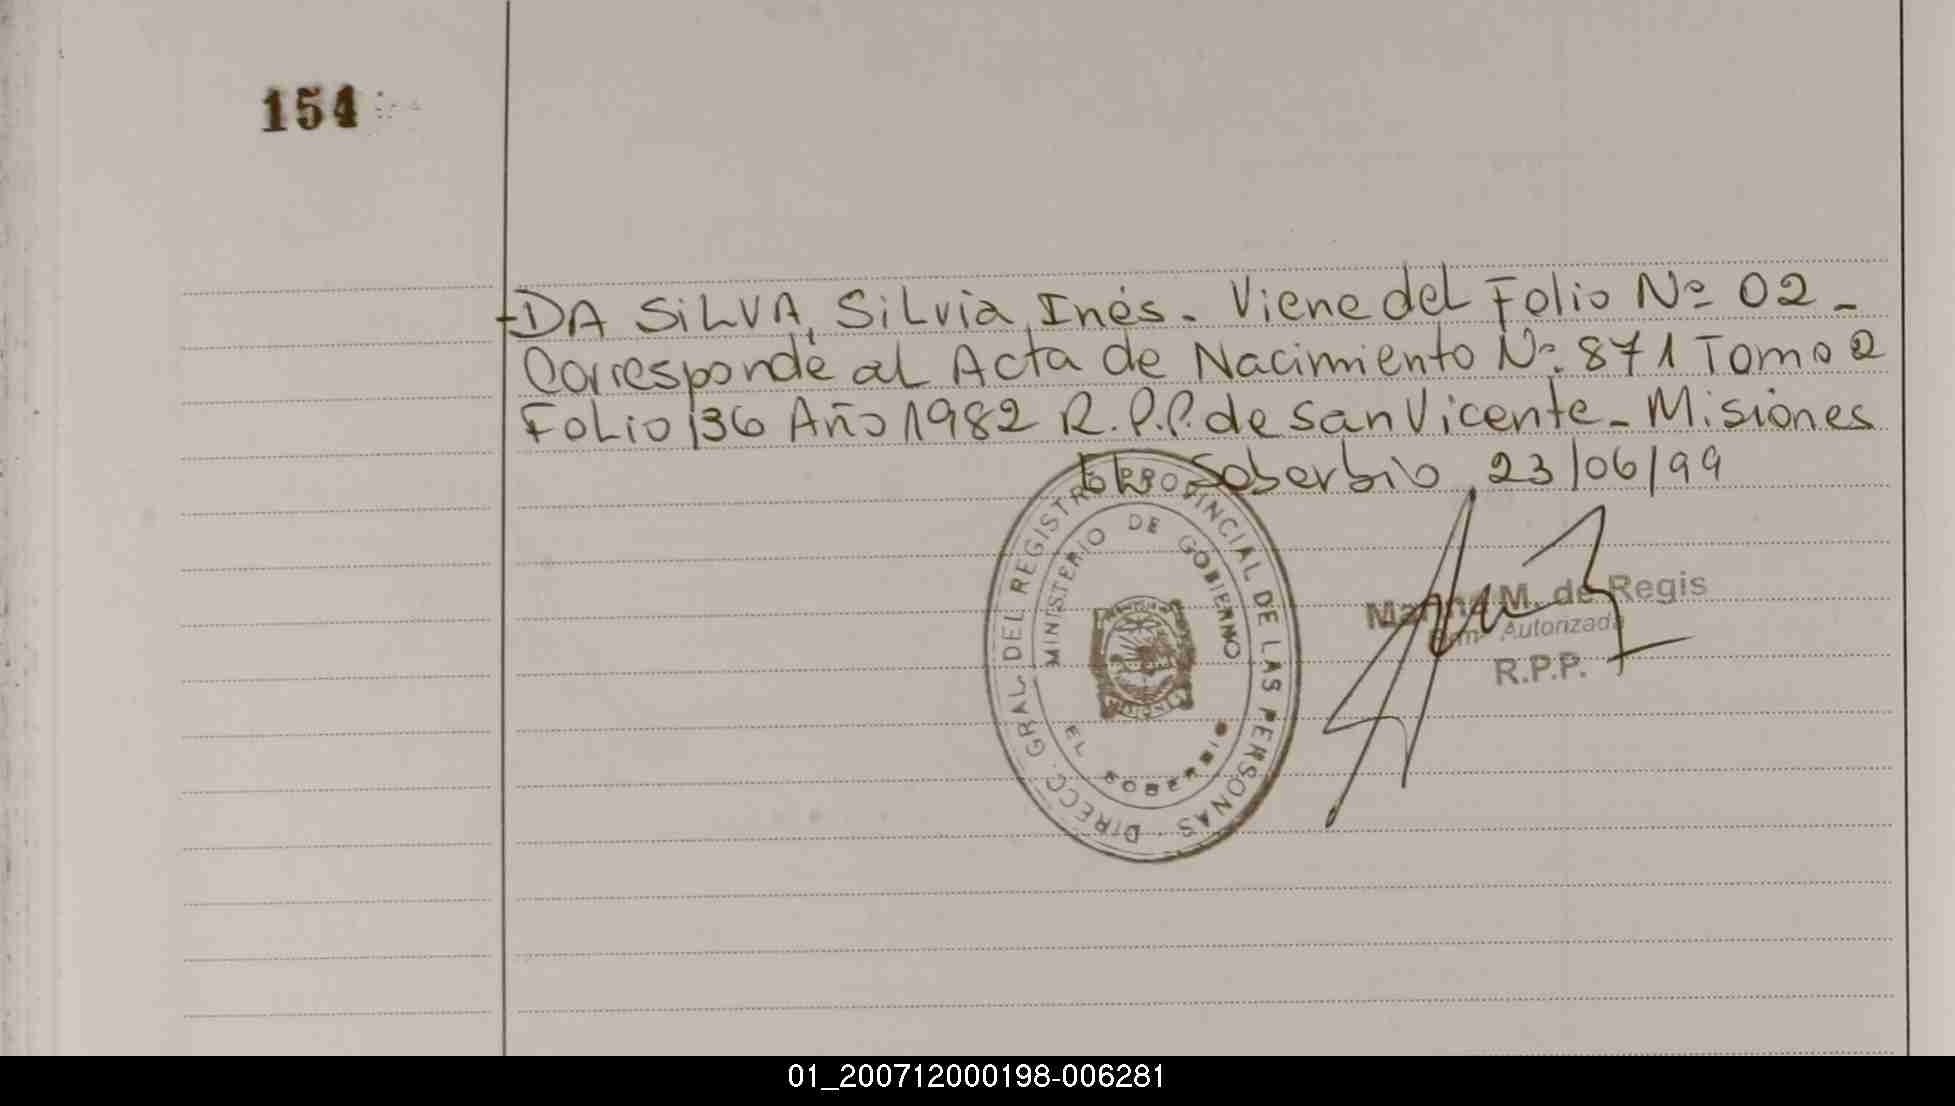 154
DA SiLVA, SiLvia Inés. Viene del Folio Nº 02 -
Corresponde al Acta de Nacimiento Nº 871 Tomo 2
FoLio 136 Año 1982 R.P.P. de San Vicente - Misiones
EL Soberbio 23/06/99
DIRECC. GRAL. DEL REGISTRO PROVINCIAL DE LAS PERSONAS
MINISTERIO DE GOBIERNO
EL SOBERBIO
M. de Regis
Autorizada
R.P.P.
01_200712000198-006281